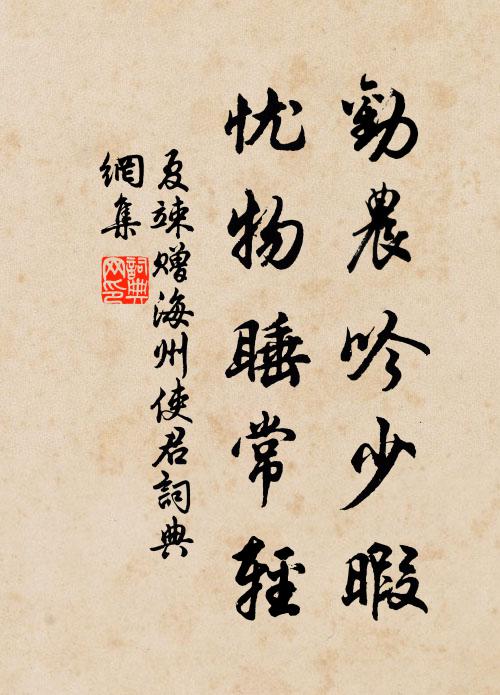 勸農吟少暇
忧物睡常輕
夏竦赠海州使君詞典
網集
詞典
网印